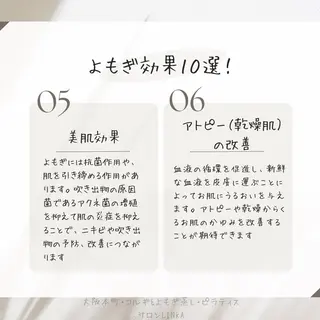 よもぎ効果10選!
05
美肌効果
よもぎには抗菌作用や、
肌を引き締める作用があ
ります。吹き出物の原因
菌であるアクネ菌の増殖
を抑えて肌の炎症を抑え
ることで、ニキビや吹き出
物の予防、改善につなが
ります
06
アトピー(乾燥肌)
の改善
血液の循環を促進し、新鮮
な血液を皮膚に運ぶことに
よってお肌にうるおいを与え
ます。アトピーや乾燥からく
るお肌のかゆみを改善する
ことが期待できます
大阪本町・コルギとよもぎ蒸し・ピラティス
サロンLINKA